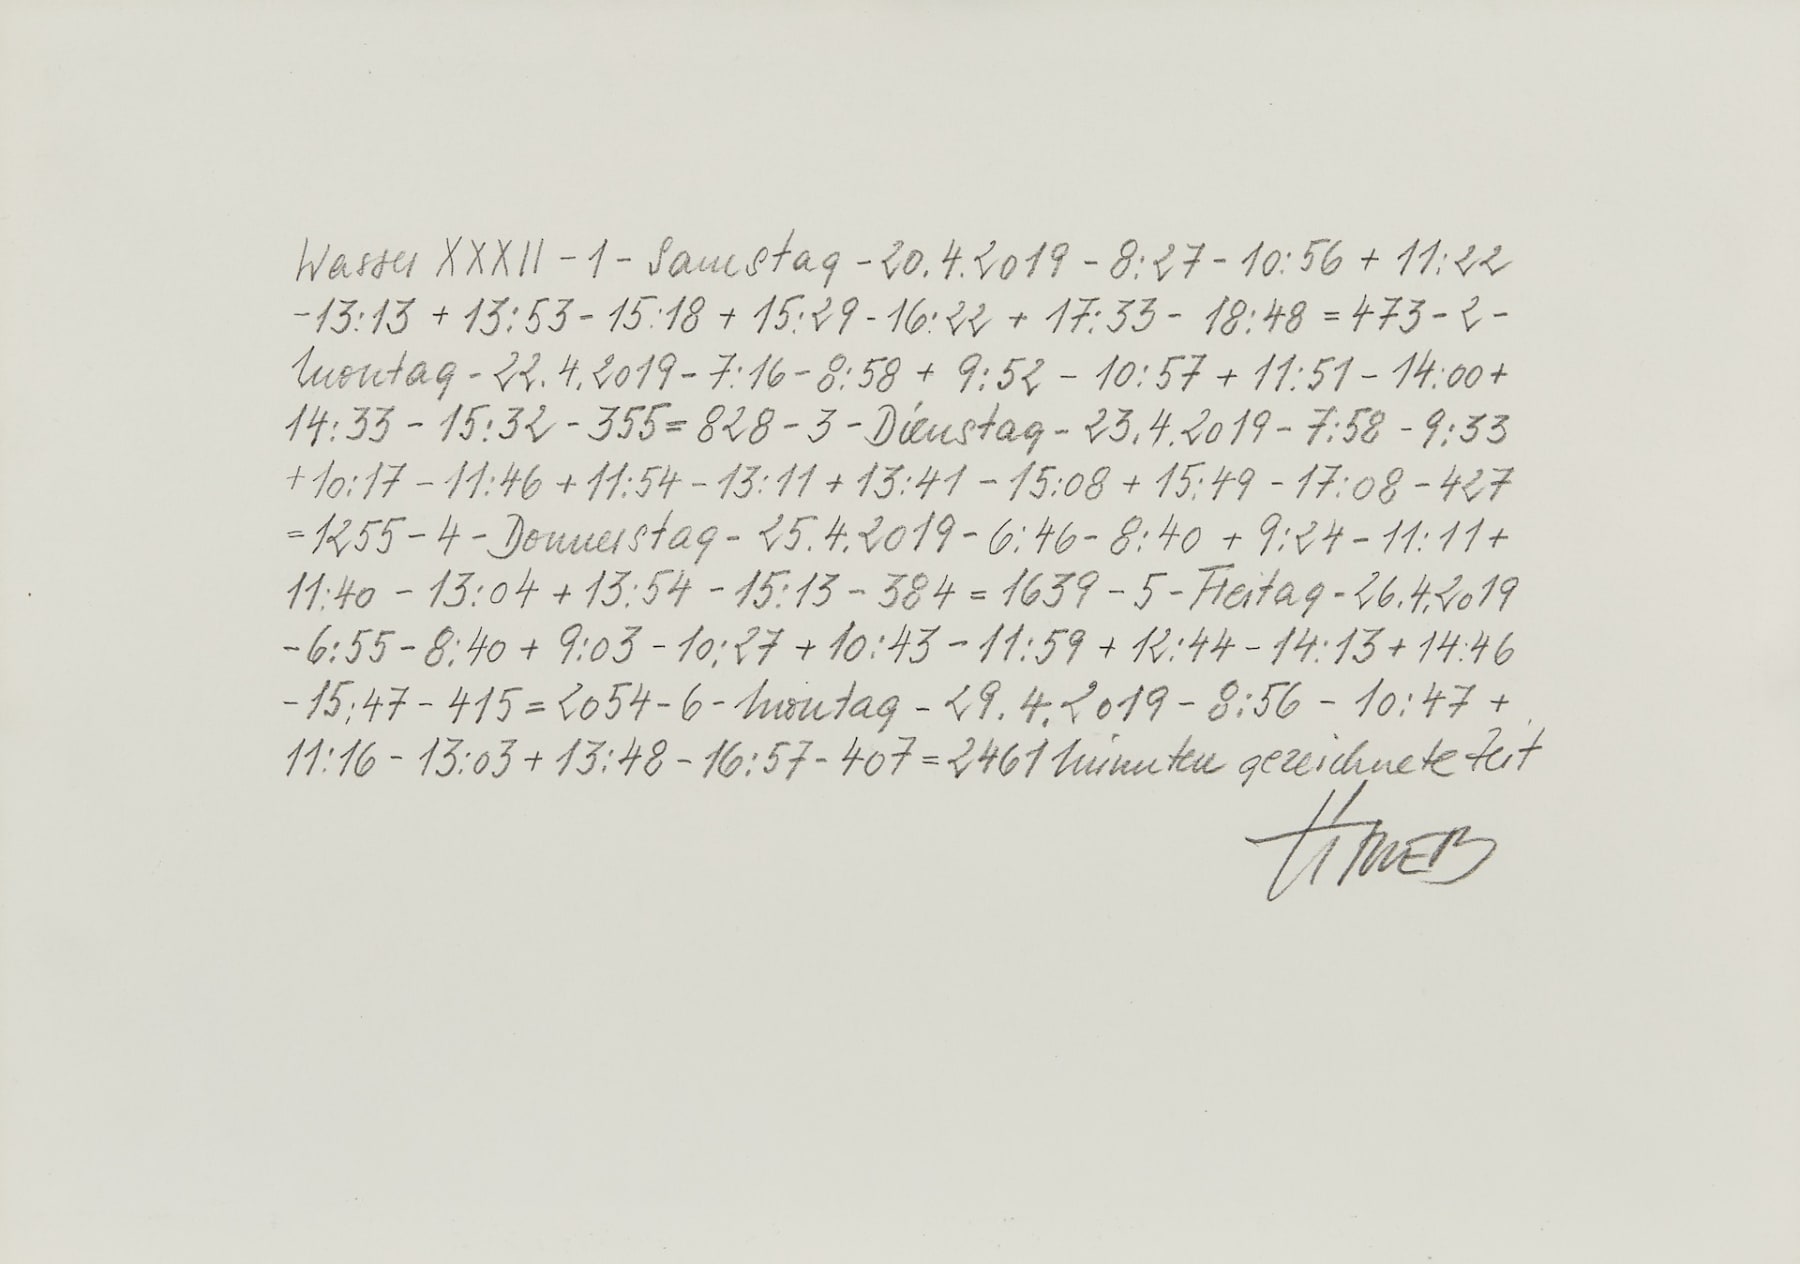 Wasser XXXII - 1 - Samstag - 20.4.2019 - 8:27 - 10:56 + 11:22
- 13:13 + 13:53 - 15:18 + 15:29 - 16:22 + 17:33 - 18:48 = 473 - 2 -
Montag - 22.4.2019 - 7:16 - 8:58 + 9:52 - 10:57 + 11:51 - 14:00 +
14:33 - 15:32 - 355 = 828 - 3 - Dienstag - 23.4.2019 - 7:58 - 9:33
+ 10:17 - 11:46 + 11:54 - 13:11 + 13:41 - 15:08 + 15:49 - 17:08 - 427
= 1255 - 4 - Donnerstag - 25.4.2019 - 6:46 - 8:40 + 9:24 - 11:11 +
11:40 - 13:04 + 13:54 - 15:13 - 384 = 1639 - 5 - Freitag - 26.4.2019
- 6:55 - 8:40 + 9:03 - 10:27 + 10:43 - 11:59 + 12:44 - 14:13 + 14:46
- 15:47 - 415 = 2054 - 6 - Montag - 29.4.2019 - 8:56 - 10:47 +
11:16 - 13:03 + 13:48 - 16:57 - 407 = 2461 Minuten gezeichnete Zeit